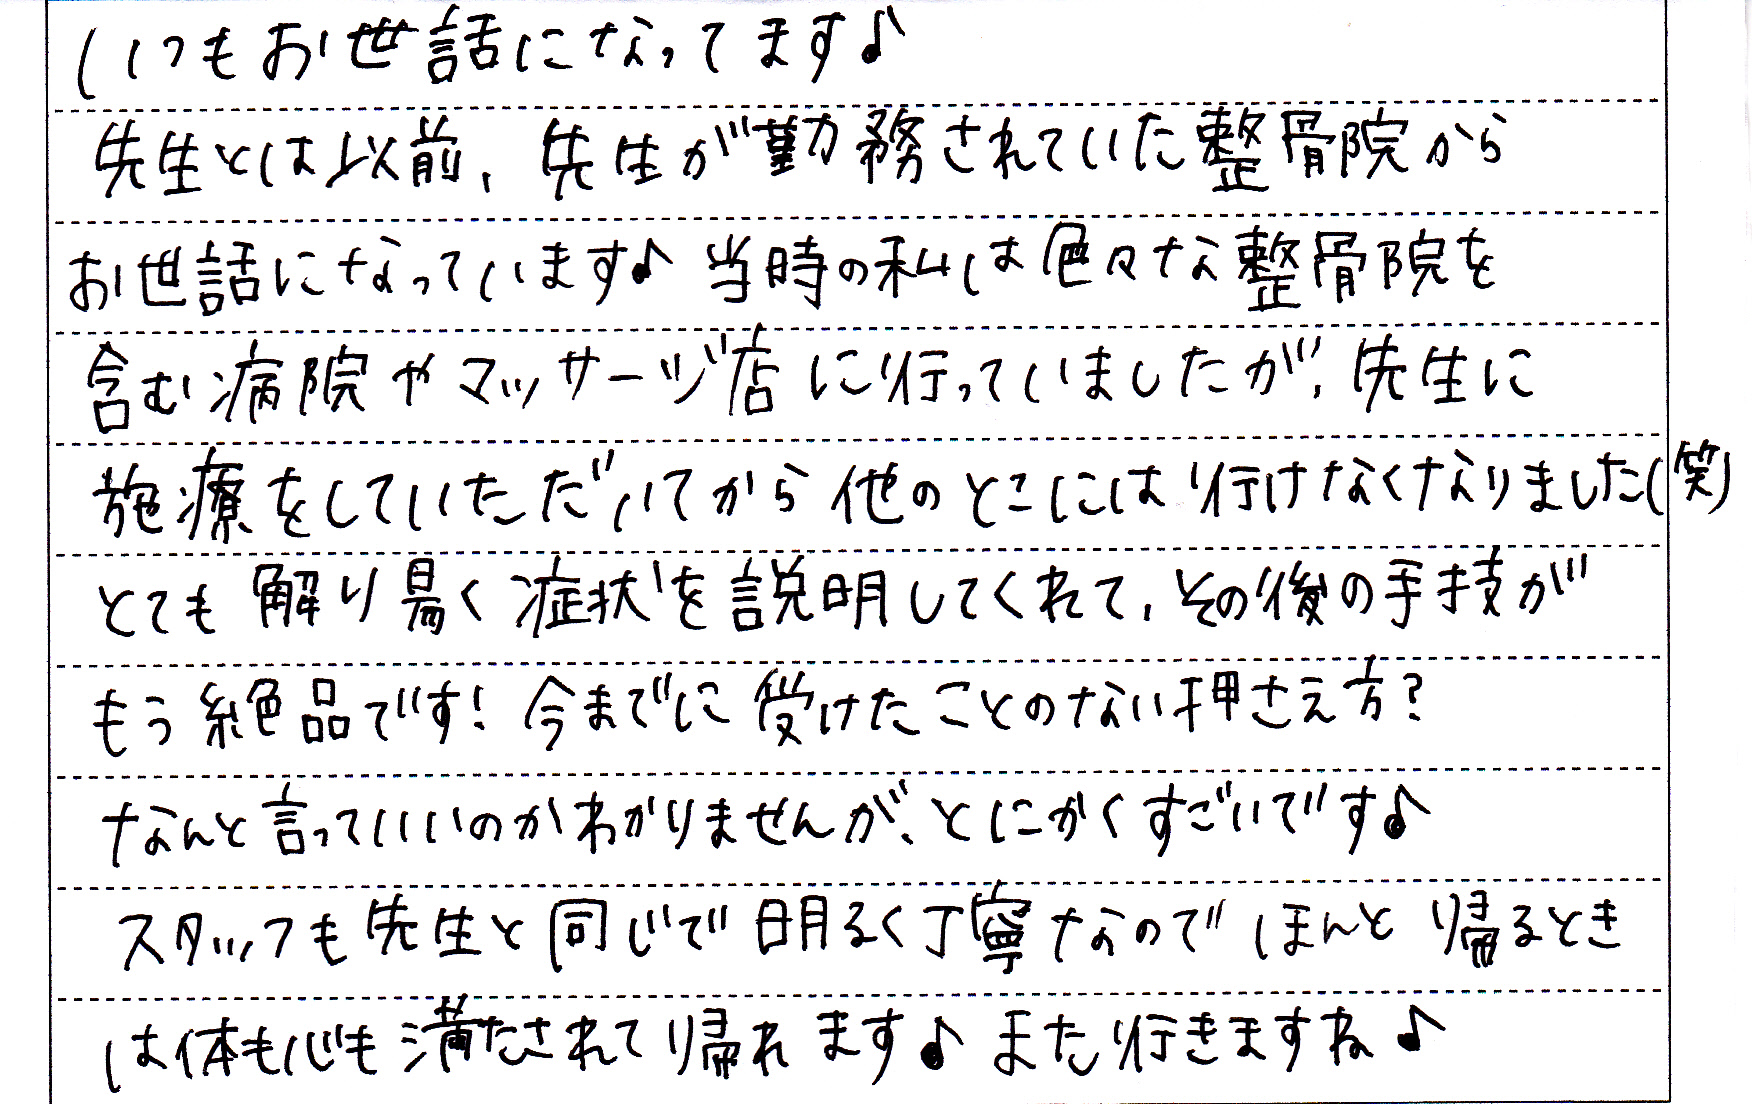 いつもお世話になってます♪
先生とは以前、先生が勤務されていた整骨院から
お世話になっています♪当時の私は色々な整骨院を
含む病院やマッサージ店に行っていましたが、先生に
施療をしていただいてから他のとこには行けなくなりました(笑)
とても解り易く症状を説明してくれて、その後の手技が
もう絶品です!今までに受けたことのない押さえ方?
なんと言っていいのかわかりませんが、とにかくすごいです♪
スタッフも先生と同じで明るく丁寧なのでほんと帰るとき
は体も心も満たされて帰れます♪また行きますね♪